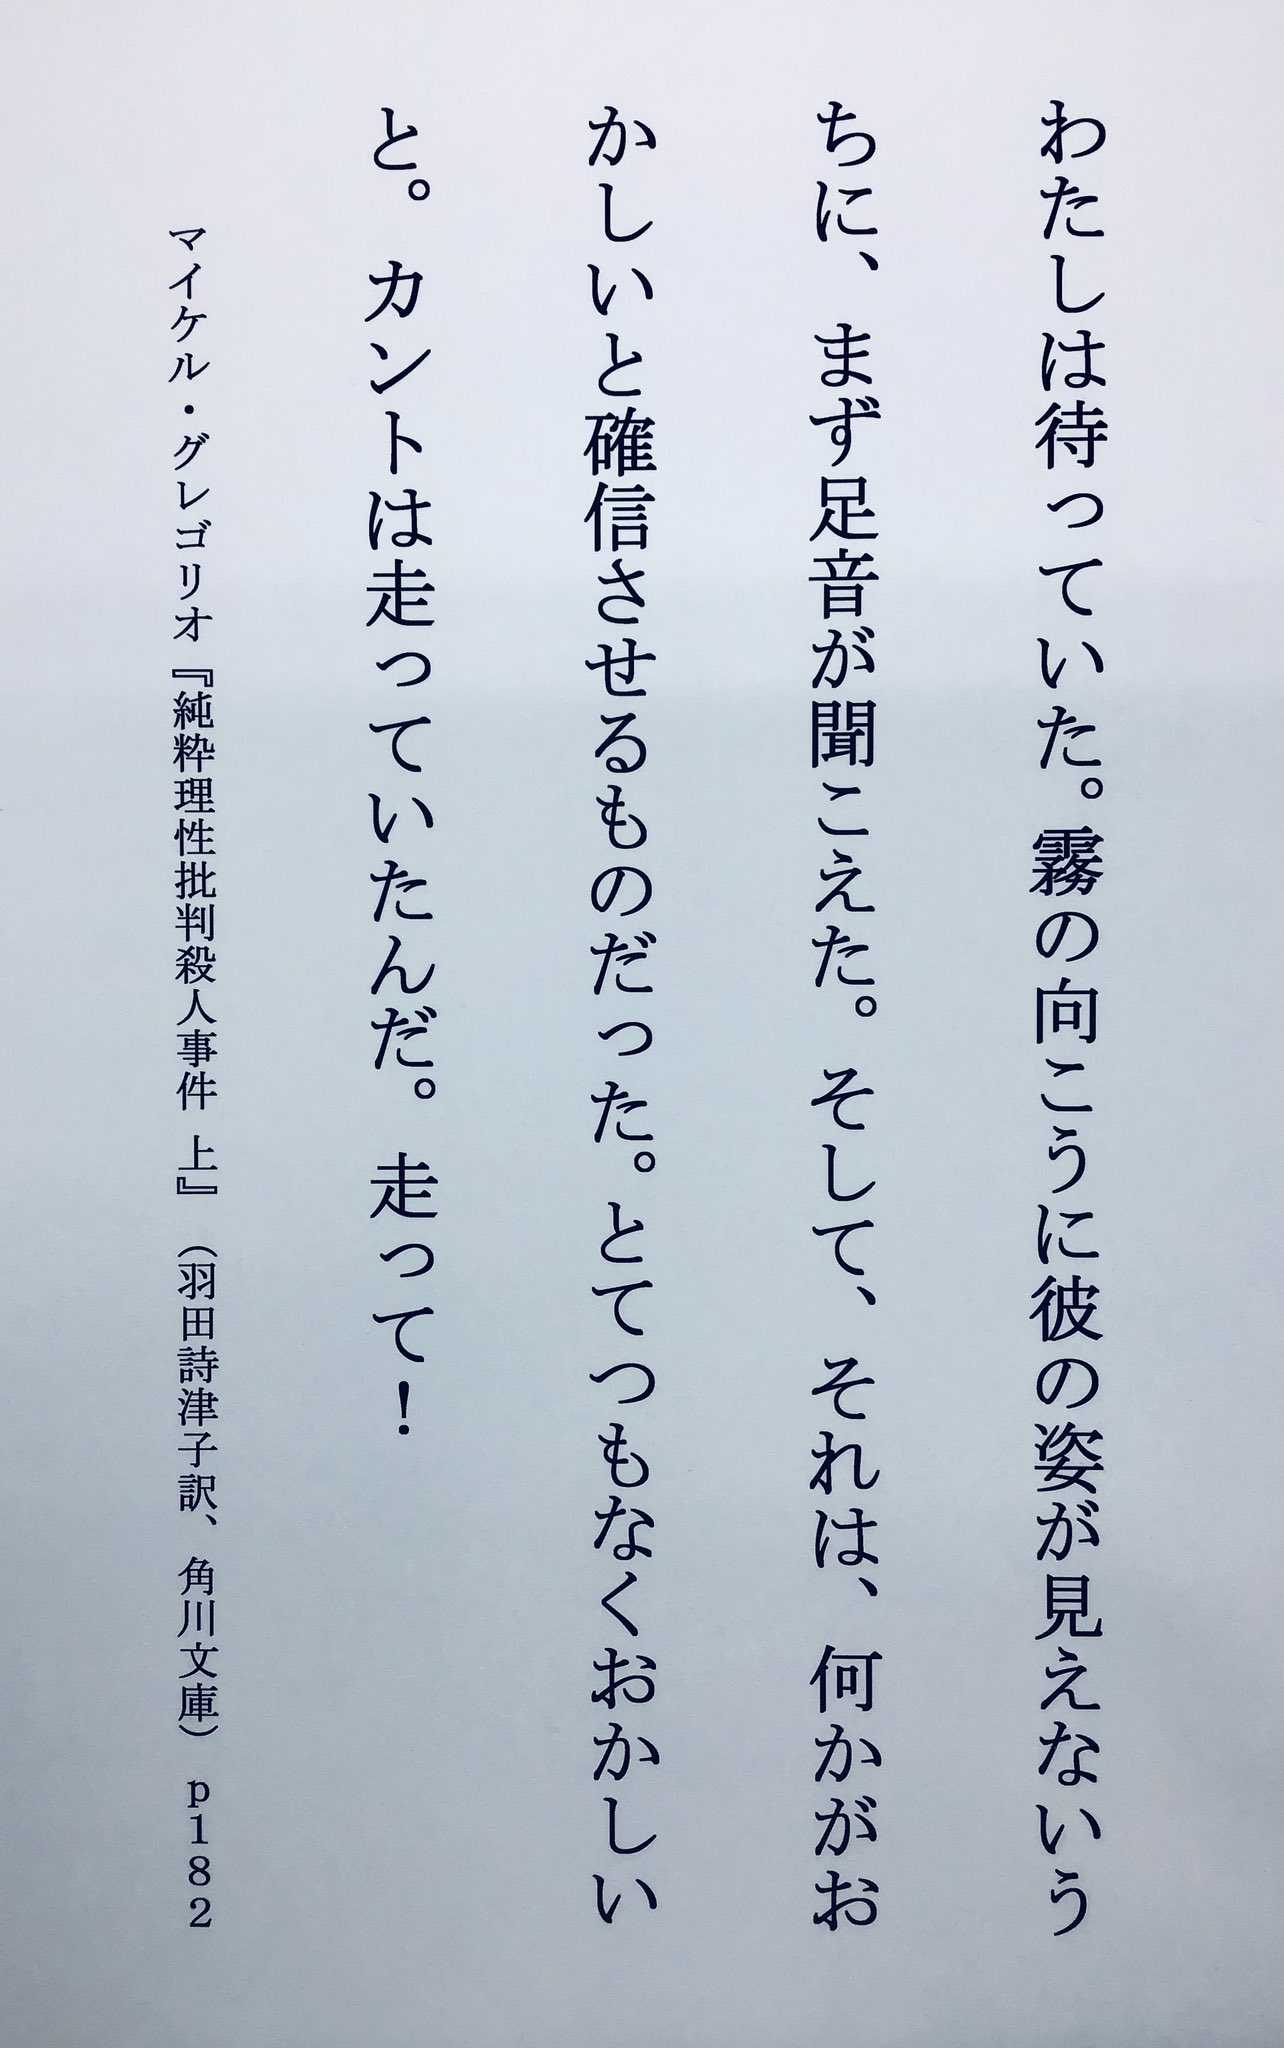 わたしは待っていた。霧の向こうに彼の姿が見えないう
ちに、まず足音が聞こえた。そして、それは、何かがお
かしいと確信させるものだった。とてつもなくおかしい
と。カントは走っていたんだ。走って！
マイケル・グレゴリオ『純粋理性批判殺人事件 上』（羽田詩津子訳、角川文庫） p182